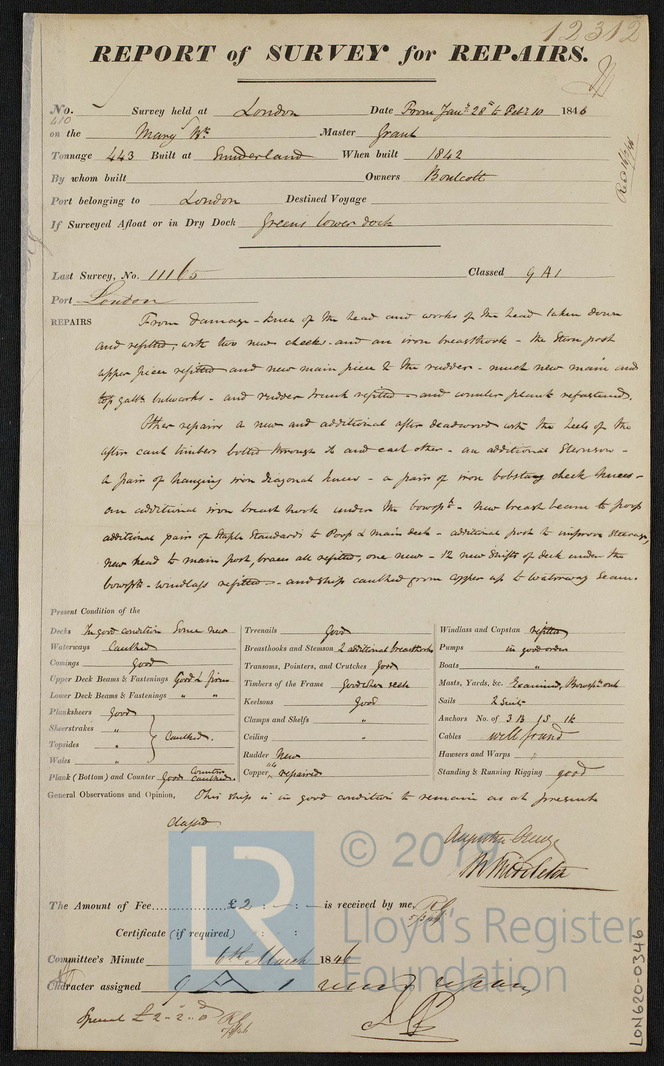 12312
REPORT of SURVEY for REPAIRS.
No. 610 Survey held at London Date From Jany 28th to Feby 10 1846
on the Mary Ws Master Grant
Tonnage 443 Built at Sunderland When built 1842
By whom built Owners Boulcott
Port belonging to London Destined Voyage
If Surveyed Afloat or in Dry Dock Greens lower dock
Last Survey, No. 11165 Classed 9 A 1
Port London
REPAIRS From damage - knee of the head and works of the head taken down
and refitted, with two new cheeks and an iron breasthook - the Stern post
upper piece refitted and new main piece to the rudder - much new main and
top gallt bulwarks - and rudder trunk refitted - and counter plank refastened.
Other repairs a new and additional after deadwood with the heels of the
after cant timbers bolted through it and each other - an additional Sternson -
a pair of hanging iron diagonal knees - a pair of iron bobstay cheek knees -
an additional iron breast hook under the bowspt - New breast beam to poop
additional pair of Staple Standards to Poop & main deck - additional post to improve steerage,
New head to main post, braces all refitted, one new - 12 new shifts of deck under the
bowspt - windlass refitted - and ship caulked from copper up to waterway Seam.
Present Condition of the
Decks In good condition Some new
Waterways Caulked
Comings Good
Upper Deck Beams & Fastenings Good & firm
Lower Deck Beams & Fastenings " "
Planksheers Good
Sheerstrakes "
Topsides " Caulked.
Wales "
Plank (Bottom) and Counter Good Counter caulked.
Treenails Good
Breasthooks and Stemson 2 additional breasthooks
Transoms, Pointers, and Crutches Good
Timbers of the Frame Good when seen
Keelsons Good
Clamps and Shelfs "
Ceiling "
Rudder New
Copper, repaired
Windlass and Capstan refitted
Pumps in good order
Boats "
Masts, Yards, &c. Examined, Bowspt out
Sails 2 Suits
Anchors No. of 3 B 1 S 1 K
Cables well found
Hawsers and Warps "
Standing & Running Rigging good
General Observations and Opinion, This ship is in good condition to remain as at present
classed
Augustin Creuze
© 2019
Lloyd's Register
Foundation
LR
The Amount of Fee £2 : - : - is received by me,
Certificate (if required) : :
Committee's Minute 6th March 1846
Character assigned 9 A 1
Special £ 2 - 2 - 0
LON620-0346